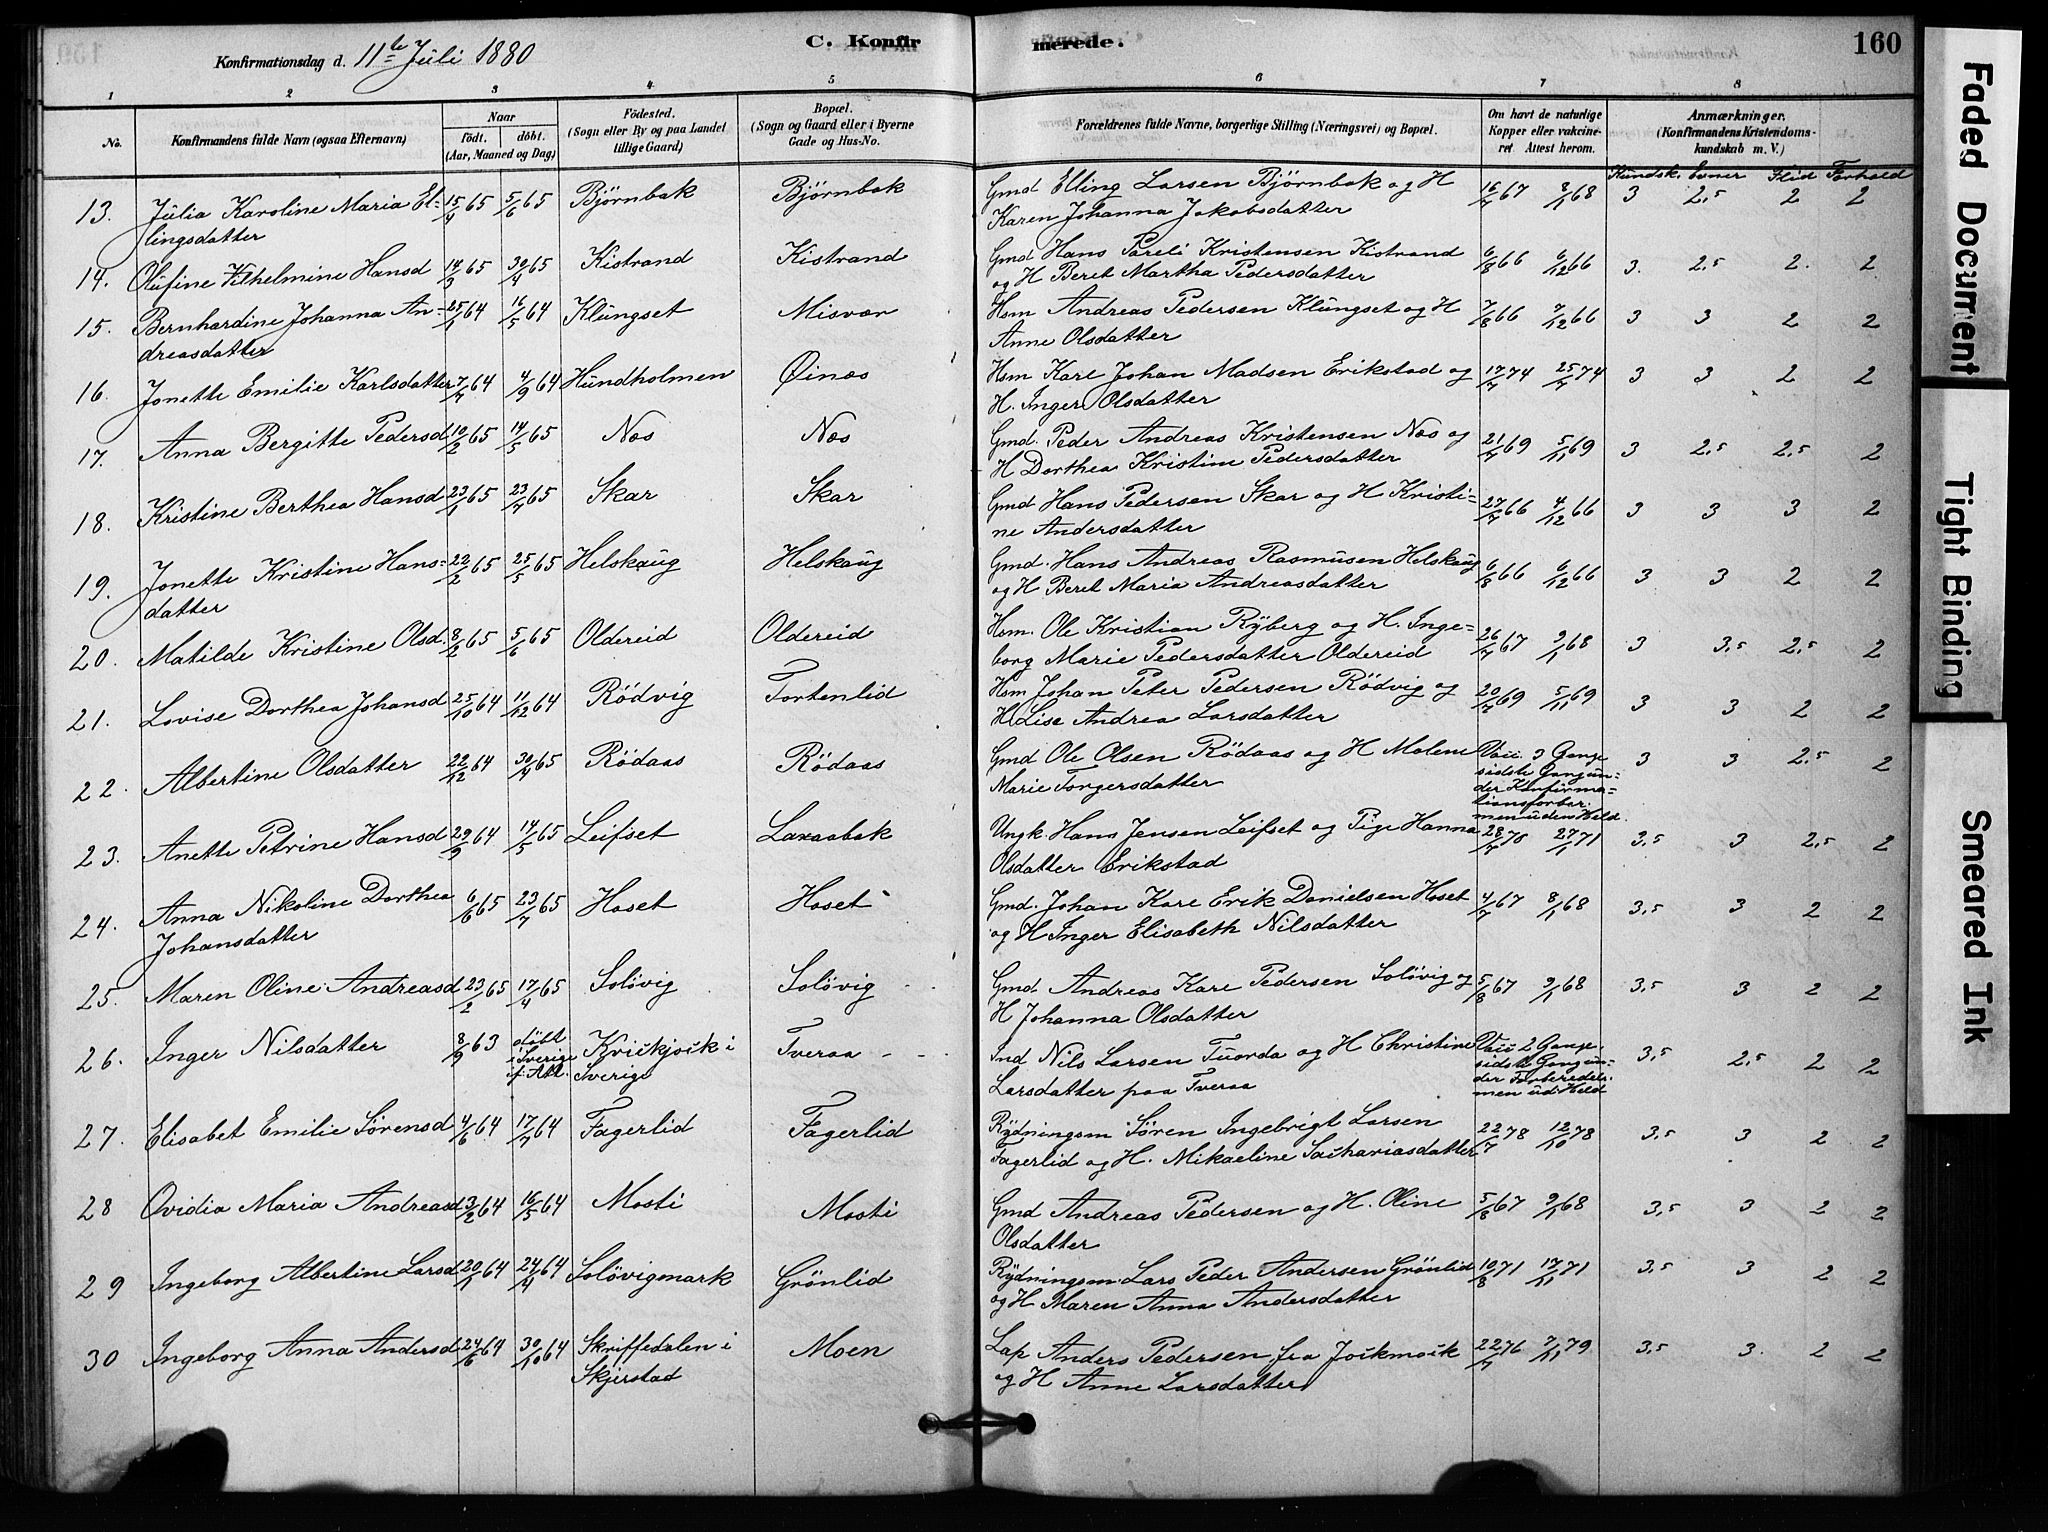 Konfirmationsdag d. 11te Juli 1880
C. Konfirmerede.
160
1 2 3 4 5 6 7 8
No.
Konfirmandens fulde Navn (ogsaa Efternavn)
Naar
födt. döbt.
(Aar, Maaned og Dag)
Födested.
(Sogn eller By og paa Landet
tillige Gaard)
Bopæl.
(Sogn og Gaard eller i Byerne
Gade og Hus-No.
Forældrenes fulde Navne, borgerlige Stilling (Næringsvei) og Bopæl.
Om havt de naturlige
Kopper eller vakcine-
ret Attest herom.
Anmærkninger.
(Konfirmandens Kristendoms-
kundskab m. V.)
Kundsk. Evner Flid Forhold
13. Julia Karoline Maria El- 15/4 65 5/6 65 Bjørnbak Bjørnbak Gmd Elling Larsen Bjørnbak og H 16/7 67 8/1 68 3 2,5 2 2
lingsdatter Karen Johanna Jakobsdatter
14. Olufine Vilhelmine Hansd 14/3 65 30/4 65 Kistrand Kistrand Gmd Hans Pareli Kristensen Kistrand 6/8 66 6/12 66 3. 2,5 2. 2
og H Beret Martha Pedersdatter
15. Bernhardine Johanna An- 25/1 64 16/5 64 Klungset Misvær Hsm Andreas Pedersen Klungset og H 7/8 66 7/12 66 3 3 2 2
dreasdatter Anne Olsdatter
16. Jonette Emilie Karlsdatter 7/7 64 4/9 64 Hundholmen Øinæs Hsm Karl Johan Madsen Erikstad og 17/7 74 25/7 74 3 3 2 2
H. Inger Olsdatter
17. Anna Bergitte Pedersd 10/2 65 14/5 65 Næs Næs Gmd. Peder Andreas Kristensen Næs og 21/7 69 5/11 69 3 2,5 2,5 2
H Dorthea Kristine Pedersdatter
18. Kristine Berthea Hansd 23/1 65 23/7 65 Skar Skar Gmd Hans Pedersen Skar og H Kristi- 27/7 66 4/12 66 3 3 3 2
ne Andersdatter
19. Jonette Kristine Hans- 22/2 65 25/5 65 Helskaug Helskaug Gmd. Hans Andreas Rasmusen Helskaug 6/8 66 6/12 66 3 3 2 2
datter og H Beret Maria Andreasdatter
20. Matilde Kristine Olsd. 8/2 65 5/6 65 Oldereid Oldereid Hsm. Ole Kristian Ryberg og H. Inge- 26/7 67 9/1 68 3 3,5 2,5 2
borg Marie Pedersdatter Oldereid
21. Lovise Dorthea Johansd 25/10 64 11/12 64 Rödvig Tortenlid Hsm Johan Peter Pedersen Rödvig og 20/7 69 5/11 69 3 3 2 2
H Lise Andrea Larsdatter
22. Albertine Olsdatter 22/12 64 30/4 65 Rödaas Rödaas Gmd Ole Olsen Rödaas og H Malene Vacc 3 Gange 3 3 2,5 2
Marie Torgersdatter sidste Gang un-
der Konfirma-
tionsforber.
men uden Held.
23. Anette Petrine Hansd 29/9 64 14/5 65 Leifset Laxaabak Ungk. Hans Jensen Leifset og Pige Hanna 28/7 70 27/1 71 3,5 3 2,5 2
Olsdatter Erikstad
24. Anna Nikoline Dorthea 6/6 65 23/7 65 Hoset Hoset Gmd. Johan Kare Erik Danielsen Hoset 4/7 67 8/1 68 3,5 3 2 2
Johansdatter og H Inger Elisabeth Nilsdatter
25. Maren Oline Andreasd 23/2 65 17/4 65 Solövig Solövig Gmd Andreas Kare Pedersen Solövig og 5/8 67 9/1 68 3,5 3 2 2
H Johanna Olsdatter
26. Inger Nilsdatter 8/9 63 döbt Kvickjock i Tveraa Ind Nils Larsen Tuorda og H Christine Vacc 2 Gange 3,5 2,5 2 2
i Sverige Sverige Larsdatter paa Tveraa sidste Gang un-
if. Att. der Forberedels.
men ud. Held
27. Elisabet Emilie Sørensd 4/6 64 17/7 64 Fagerlid Fagerlid Rydningsm Søren Ingebrigt Larsen 22/7 78 12/10 78 3,5 3 2 2
Fagerlid og H. Mikaeline Sachariasdatter
28 Ovidia Maria Andreasd 3/2 64 16/5 64 Mosti Mosti Gmd Andreas Pedersen og H. Oline 5/8 67 9/1 68 3,5 3 2 2
Olsdatter
29 Ingeborg Albertine Larsd 20/1 64 24/4 64 Solövigmark Grönlid Rydningsm Lars Peder Andersen Grönlid 10/8 71 17/11 71 3,5 3 2 2
og H Maren Anna Andersdatter
30 Ingeborg Anna Andersd 24/6 64 30/10 64 Skriffedalen i Moen Lap Anders Pedersen fra Jockmock 22/7 76 7/11 79 3,5 3. 2 2
Skjerstad og H Anne Larsdatter
Faded Document
Tight Binding
Smeared Ink